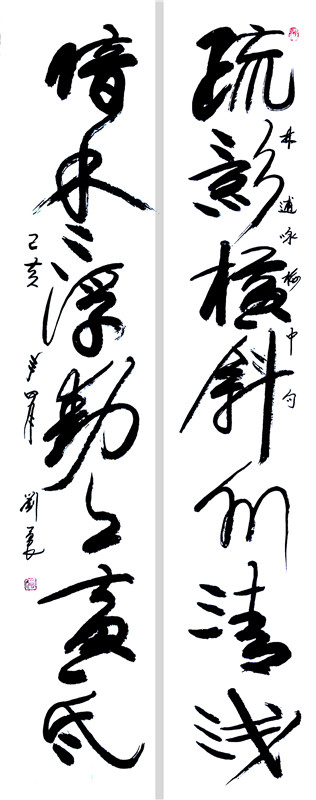 疏影横斜水清浅
林逋咏梅中句
暗香浮動月黄昏
己亥 四月 劉